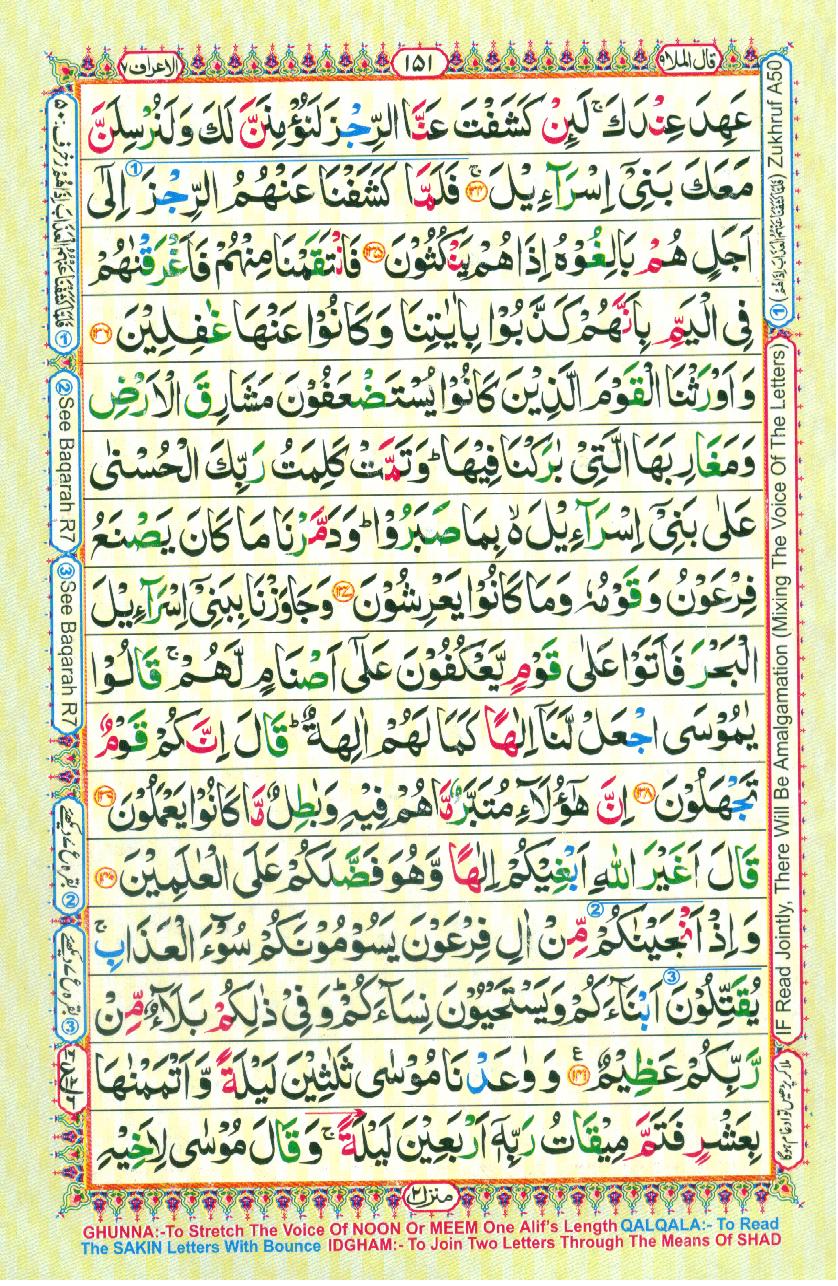 قال الملا ۹
۱۵۱
الاعراف ۷
عَهِدَ عِنْدَكَ ۚ لَئِنْ كَشَفْتَ عَنَّا الرِّجْزَ لَنُؤْمِنَنَّ لَكَ وَلَنُرْسِلَنَّ
مَعَكَ بَنِیْۤ اِسْرَآءِیْلَ ۚ ﴿۱۳۴﴾ فَلَمَّا كَشَفْنَا عَنْهُمُ الرِّجْزَ اِلٰۤی
اَجَلٍ هُمْ بَالِغُوْهُ اِذَا هُمْ یَنْكُثُوْنَ ﴿۱۳۵﴾ فَانْتَقَمْنَا مِنْهُمْ فَاَغْرَقْنٰهُمْ
فِی الْیَمِّ بِاَنَّهُمْ كَذَّبُوْا بِاٰیٰتِنَا وَكَانُوْا عَنْهَا غٰفِلِیْنَ ﴿۱۳۶﴾
وَاَوْرَثْنَا الْقَوْمَ الَّذِیْنَ كَانُوْا یُسْتَضْعَفُوْنَ مَشَارِقَ الْاَرْضِ
وَمَغَارِبَهَا الَّتِیْ بٰرَكْنَا فِیْهَا ؕ وَتَمَّتْ كَلِمَتُ رَبِّكَ الْحُسْنٰی
عَلٰی بَنِیْۤ اِسْرَآءِیْلَ ۙ۬ بِمَا صَبَرُوْا ؕ وَدَمَّرْنَا مَا كَانَ یَصْنَعُ
فِرْعَوْنُ وَقَوْمُهٗ وَمَا كَانُوْا یَعْرِشُوْنَ ﴿۱۳۷﴾ وَجَاوَزْنَا بِبَنِیْۤ اِسْرَآءِیْلَ
الْبَحْرَ فَاَتَوْا عَلٰی قَوْمٍ یَّعْكُفُوْنَ عَلٰۤی اَصْنَامٍ لَّهُمْ ۚ قَالُوْا
یٰمُوْسَی اجْعَلْ لَّنَاۤ اِلٰهًا كَمَا لَهُمْ اٰلِهَةٌ ؕ قَالَ اِنَّكُمْ قَوْمٌ
تَجْهَلُوْنَ ﴿۱۳۸﴾ اِنَّ هٰۤؤُلَآءِ مُتَبَّرٌ مَّا هُمْ فِیْهِ وَبٰطِلٌ مَّا كَانُوْا یَعْمَلُوْنَ ﴿۱۳۹﴾
قَالَ اَغَیْرَ اللّٰهِ اَبْغِیْكُمْ اِلٰهًا وَّهُوَ فَضَّلَكُمْ عَلَی الْعٰلَمِیْنَ ﴿۱۴۰﴾
وَاِذْ اَنْجَیْنٰكُمْ مِّنْ اٰلِ فِرْعَوْنَ یَسُوْمُوْنَكُمْ سُوْٓءَ الْعَذَابِ ۚ
یُقَتِّلُوْنَ اَبْنَآءَكُمْ وَیَسْتَحْیُوْنَ نِسَآءَكُمْ ؕ وَفِیْ ذٰلِكُمْ بَلَآءٌ مِّنْ
رَّبِّكُمْ عَظِیْمٌ ﴿۱۴۱﴾ ع وَوٰعَدْنَا مُوْسٰی ثَلٰثِیْنَ لَیْلَةً وَّاَتْمَمْنٰهَا
بِعَشْرٍ فَتَمَّ مِیْقَاتُ رَبِّهٖۤ اَرْبَعِیْنَ لَیْلَةً ۚ وَقَالَ مُوْسٰی لِاَخِیْهِ
منزل ۲
① Zukhruf A50
IF Read Jointly, There Will Be Amalgamation (Mixing The Voice Of The Letters)
② See Baqarah R7
③ See Baqarah R7
GHUNNA:-To Stretch The Voice Of NOON Or MEEM One Alif's Length QALQALA:- To Read
The SAKIN Letters With Bounce IDGHAM:- To Join Two Letters Through The Means Of SHAD